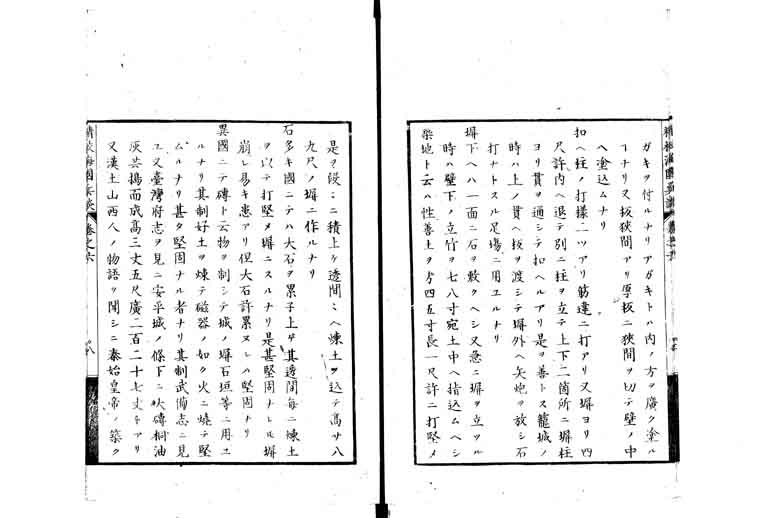 ガキヲ付ルナリアガキトハ内ノ方ヲ廣ク塗ル
コナリ又板狹間アリ厚板ニ狹間ヲ切テ壁ノ中
ヘ塗込ムナリ
扣ヘ柱ノ打様二ツアリ筋違ニ打アリ又塀ヨリ四
尺許内ヘ退テ別ニ柱ヲ立テ上下二箇所ニ塀柱
ヨリ貫ヲ通シテ扣ヘルアリ是ヲ善トス籠城ノ
時ハ上ノ貫ヘ板ヲ渡シテ塀外ヘ矢炮ヲ放シ石
打ナトスル足場ニ用ユルナリ
塀下ヘハ一面ニ石ヲ敷クヘシ又急ニ塀ヲ立ツル
時ハ壁下ノ立竹ヲ七八寸宛土中ヘ指込ムヘシ
築地ト云ハ性善土ヲ方四五寸長一尺許ニ打堅メ
精校海國兵談 卷之六
是ヲ段々ニ積上ケ透間々々ヘ煉土ヲ込テ高サ八
九尺ノ塀ニ作ルナリ
石多キ國ニテハ大石ヲ累子上ケ其透間毎ニ煉土
ヲ以テ打堅メ塀ニスルナリ是甚堅固ナレル塀
崩レ易キ患アリ但大石許累タルハ堅固ナリ
異國ニテ磚ト云物ヲ制シテ城ノ塀石垣等ニ用ユ
ルナリ其制好土ヲ煉テ磁器ノ如ク火ニ燒テ堅
ムルナリ甚タ堅固ナル者ナリ其制武備志ニ見
ユ又臺灣府志ヲ見ニ安平城ノ條下ニ大磚桐油
灰共搗而成高三丈五尺廣二百二十七丈トアリ
又漢土山西人ノ物語ヲ聞シニ秦始皇帝ノ築ク
精校海國兵談 卷之六